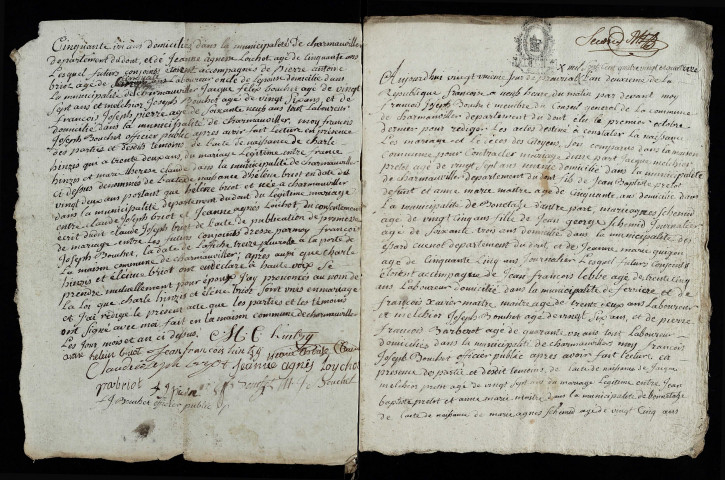 Cinquante six ans domicilié dans la municipalité de charmauviller
département du doubt, et de Jeanne agnesse Louchot, agé de cinquante ans
Lesquel futurs conjoints étoient accompagnés de Pierre antoine
briot agé de Laboureur oncle de l'épouse domicilié dans
la municipalité de charmauviller, Jacque felix Bouchot agé de vingt
Sept ans et melchior Joseph Bouchot agé de vingt six ans, et de
François Joseph pierre agé de Soixante neuf ans tout Laboureur
domicilié dans la municipalité de charmauviller, moy françois
Joseph Bouchot officier public après avoir fait lecture en présence
des parties et desdit temoins de l'acte de naissance de charle
hinzis qui a trente deux ans, du mariage Légitime entre françois
hinzis et marie therese claude dans la municipalité de charmauviller
et dessus denommés de l'acte de naissance d'hélène briot en date du
vingt deux ans portant que hélène briot est née a charmauviller
dans la municipalité département dudout du légitime mariage
entre claude Joseph briot et Jeanne agnès Louchot du consentement
écrit dudit claude Joseph briot de l'acte de publication de promesse
de mariage entre les futurs conjoints dressé par moy françois
Joseph Bouchot, la date de affiché à la porte de
La maison commune de charmauviller; après aussi que charle
hinzis et élène briot ont eu déclaré a haute voix se
prendre mutuellement pour époux J'ay prononcés au nom de
La loi que charle hinzis et élène briot sont unis en mariage
et J'ai rédigé le présent acte que les parties et les témoins
ont signé avec moi fait en la maison commune de charmauviller
Les jour mois et an ci dessus.
Jeanne agnès Louchot
briot
f J Bouchot officier public
Second
X mil sept cent quatre vingt et quatorze
Aujourdhuy vingt unième jour de prairial l'an deuxième de la
République françoise a neuf heure du matin par devant moy
françois Joseph Bouchot membre du Conseil general de la commune
de charmauviller département du dout elu le premier octobre
dernier pour rédiger les actes destiné à constater la naissance
Les mariage et le décès des citoyens, son comparus dans la maison
Commune pour contracter mariage d'une part Jacque melchior
prelot agé de vingt sept ans domicilié dans la municipalité
de charmauviller département du dout fils de Jean Baptiste prelot
défunt et anne marie maitre agé de cinquante ans domicilié dans
La municipalité de Bonetage d'autre part, marie agnes schemid
agé de vingt Cinq ans fille de Jean george schemid Journalier
agé de Soixante trois ans domicilié dans la municipalité des
Ecard cuenot département du dout, et de Jeanne marie guigon
agé de Cinquante Cinq ans Journalier Lesquel futurs Conjoints
étoient accompagné de Jean françois lebbe agé de trente Cinq
ans Laboureur domicilié dans la municipalité de ferriere et de
françois xavier maitre, agé de trente deux ans Laboureur
et melchior Joseph Bouchot agé de vingt six ans, et de pierre
françois Barberot agé de quarante un ans tout Laboureur
domicilié dans la municipalité de charmauviller moy françois
Joseph Bouchot officier public après avoir fait lecture en
présence des parties et desdit temoins de l'acte de naissance de Jacque
melchior prelot agé de vingt sept ans du mariage Légitime entre Jean
baptiste prelot et anne marie maitre dans la municipalité de bonnetage
de l'acte de naissance de marie agnès schemid agé de vingt Cinq ans